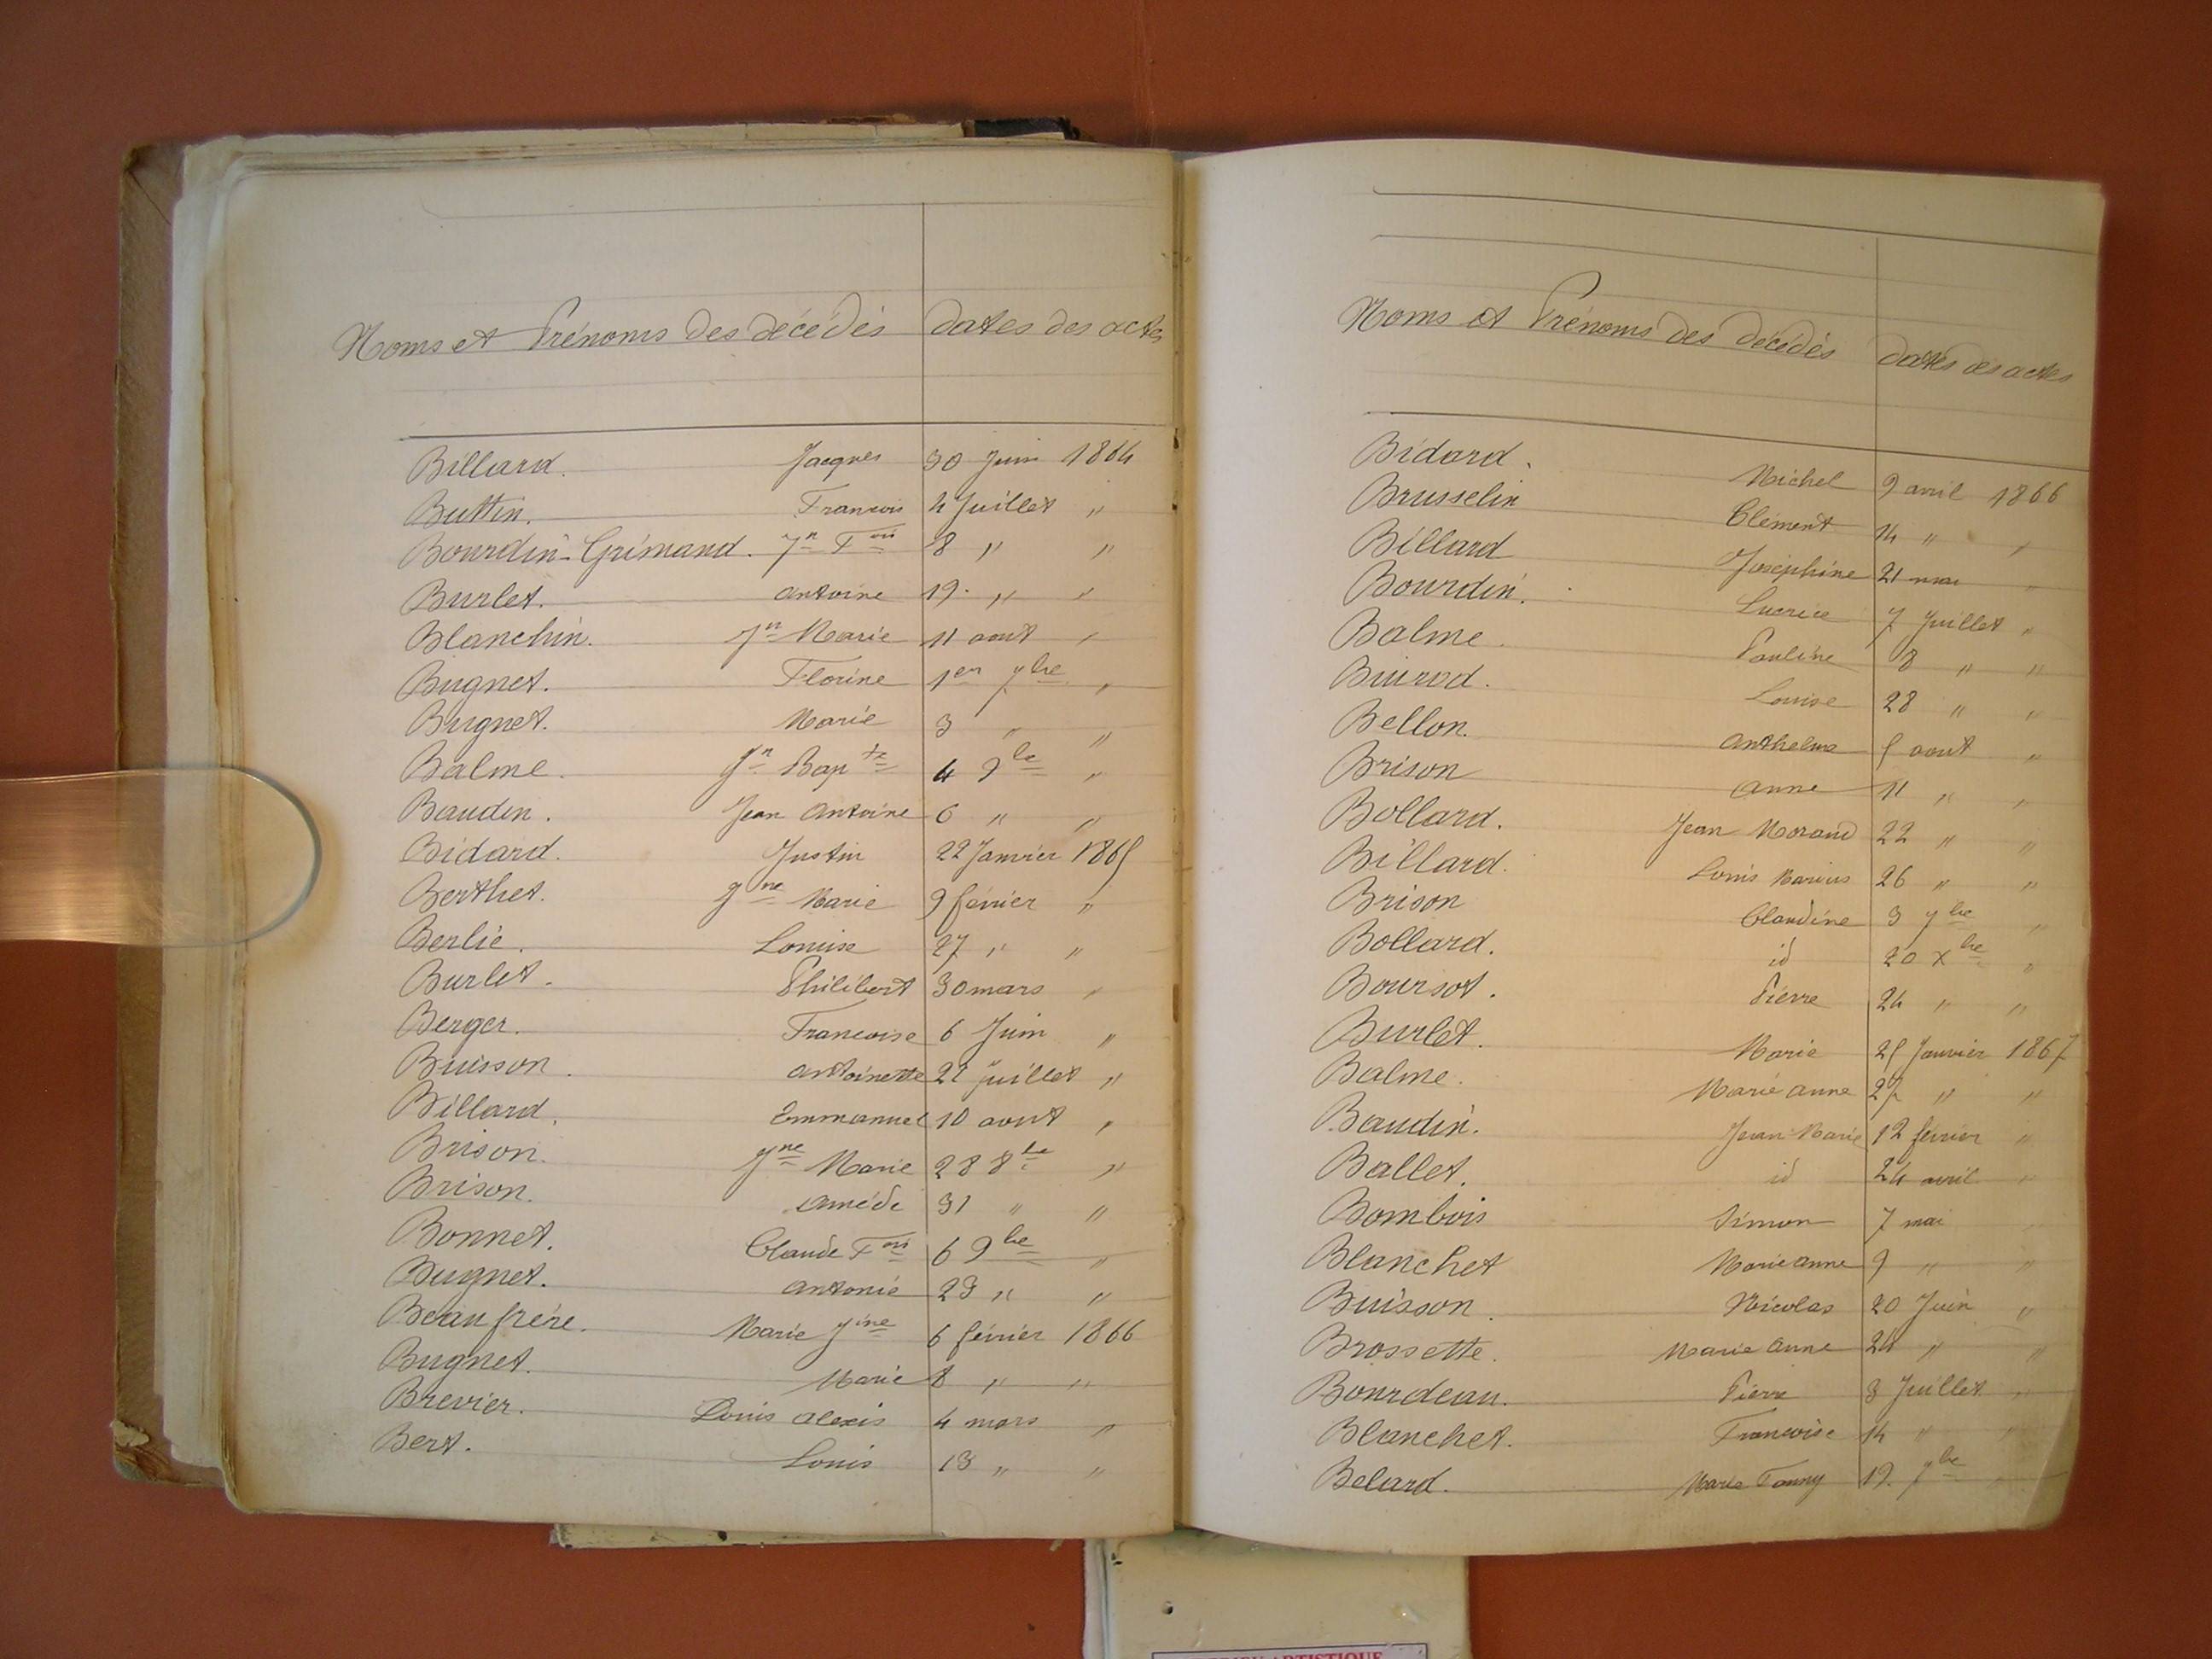 Noms et Prénoms des décédés dates des actes
Billard. Jacques 30 Juin 1864
Buttin. Francois 4 Juillet "
Bourdin-Grimaud. Jn Fois 8 " "
Burlet. antoine 19. " "
Blanchin. Jn Marie 11 aout "
Bugnet. Florine 1er 7bre "
Bugnet. Marie 3 " "
Balme. Jn Bapte 4 9bre "
Baudin. Jean Antoine 6 " "
Bidard. Justin 22 Janvier 1865
Berthet. Jne Marie 9 février "
Berlie. Louise 27 " "
Burlet. Philibert 30 mars "
Berger. Francoise 6 Juin "
Buisson. antoinette 22 Juillet "
Billard. Emmanuel 10 aout "
Brison. Jne Marie 28 8bre "
Brison. amédé 31 " "
Bonnet. Claude Fois 6 9bre "
Bugnet. antonie 23 " "
Beaufrére. Marie Jine 6 février 1866
Bugnet. Marie 8 " "
Brevier. Louis alexis 4 mars "
Bert. Louis 13 " "
Noms et Prénoms des décédés dates des actes
Bidard. Michel 9 avril 1866
Brusselin Clément 14 " "
Billard Joséphine 21 mai "
Bourdin. Lucrice 7 Juillet "
Balme. Pauline 8 " "
Louise 28 " "
Bellon. anthelme 5 aout "
Brison anne 11 " "
Bollard. Jean Morand 22 " "
Billard. Louis Marius 26 " "
Brison Claudine 3 7bre "
Bollard. id 20 Xbre "
Boursot. Pierre 24 " "
Burlet. Marie 25 Janvier 1867
Balme. Marie anne 27 " "
Baudin. Jean Marie 12 février "
Ballet. id 24 avril "
Bombois Simon 7 mai
Blanchet Marie anne 9 " "
Buisson. Nicolas 20 Juin "
Brossette. Marie anne 24 " "
Bourdeau. Pierre 3 Juillet "
Blanchet. Francoise 14 " "
Belard. Marie Fanny 19. 7bre "
ARTISTIQUE